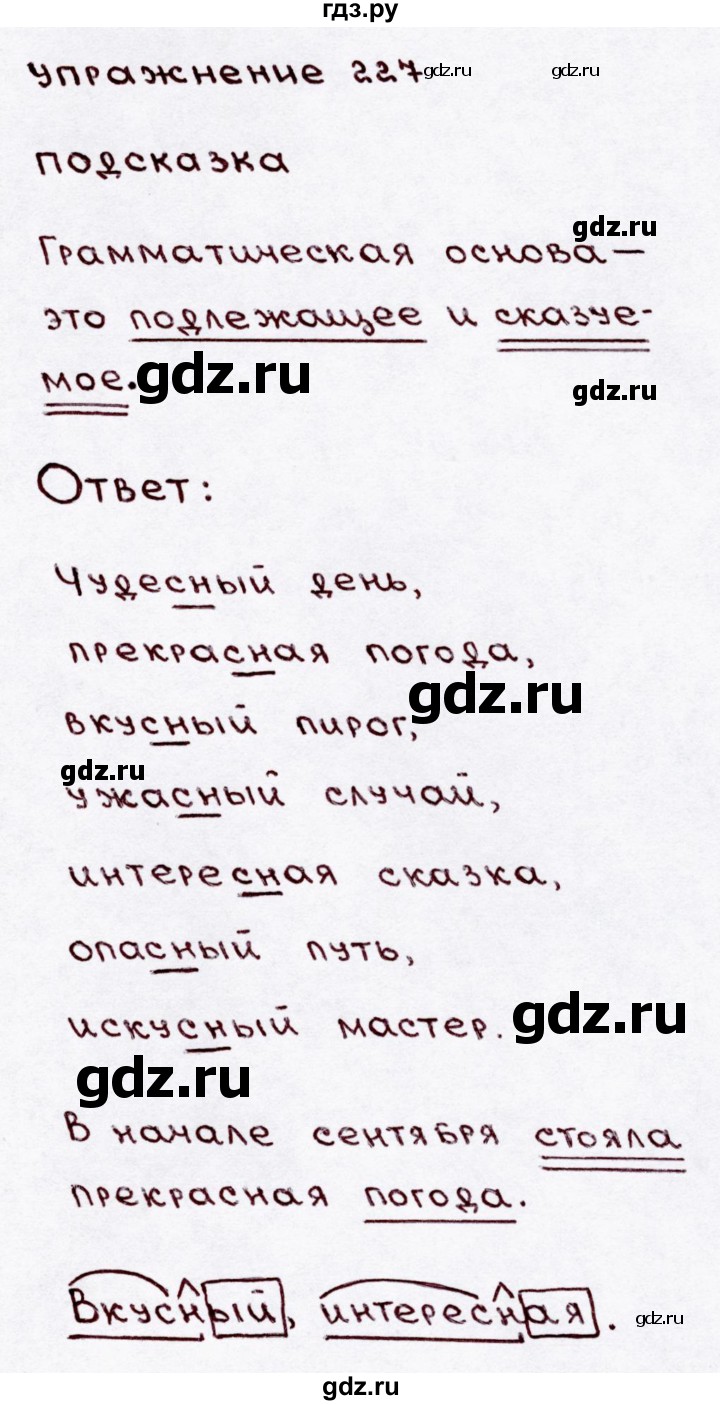 гдз.ру
упражнение 227 gdz.ru gdz.ru
подсказка
gdz.ru
Грамматическая основа –
это подлежащее и сказуе-
мое. gdz.ru gdz.ru
Ответ:
Чудесный день,
прекрасная погода,
gdz.ru
вкусный пирог,
gdz.ru
ужасный случай,
интересная сказка,
опасный путь,
искусный мастер. gdz.ru
gdz.ru
В начале сентября стояла
прекрасная погода.
Вкусный, интересная. gdz.ru
gdz.ru